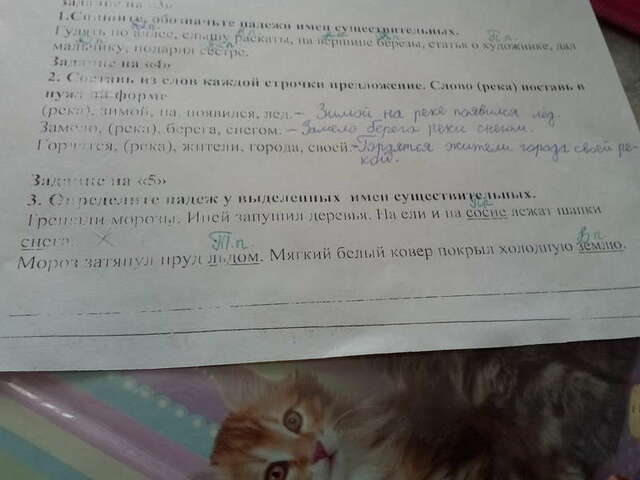 Задание на «3»
1.Спишите, обозначьте падежи имен существительных.
Гулять по аллее, слышу раскаты, на вершине березы, статья о художнике, дал
мальчику, подарил сестре.
Задание на «4»
2. Составь из слов каждой строчки предложение. Слово (река) поставь в
нужной форме
(река), зимой, на, появился, лед. – Зимой на реке появился лёд.
Замело, (река), берега, снегом. – Замело берега реки снегом.
Гордятся, (река), жители, города, своей. – Гордятся жители города своей ре-
кой.
Задание на «5»
3. Определите падеж у выделенных имен существительных.
П.п.
Грешали морозы. Иней запушил деревья. На ели и на сосне лежат шапки
снега.
Т.п. В.п.
Мороз затянул пруд льдом. Мягкий белый ковер покрыл холодную землю.